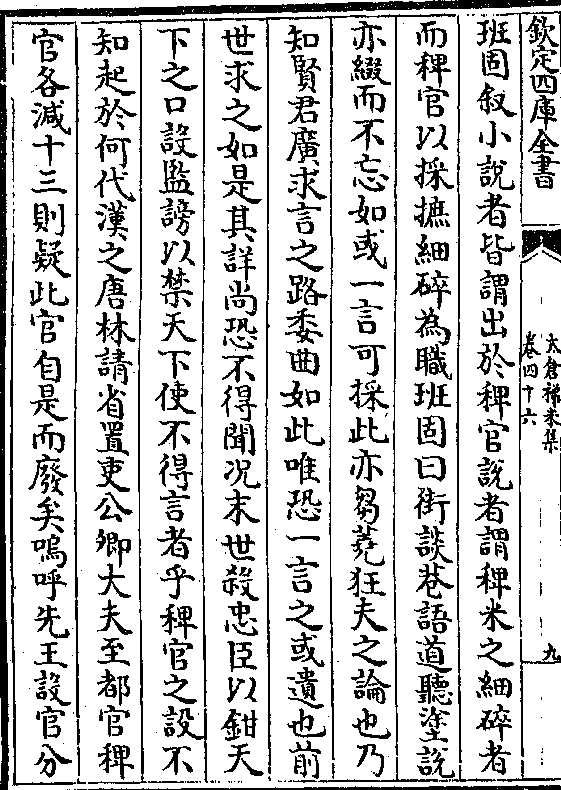 欽定四庫全書
太倉稊米集
卷四十六
九
班固叙小說者皆謂出於稗官說者謂稗米之細碎者
而稗官以採摭細碎為職班固曰街談巷語道聽塗説
亦綴而不忘如或一言可採此亦芻蕘狂夫之論也乃
知賢君廣求言之路委曲如此唯恐一言之或遺也前
世求之如是其詳尚恐不得聞况末世殺忠臣以鉗天
下之口設監謗以禁天下使不得言者乎稗官之設不
知起於何代漢之唐林請省置吏公卿大夫至都官稗
官各減十三則疑此官自是而廢矣嗚呼先王設官分